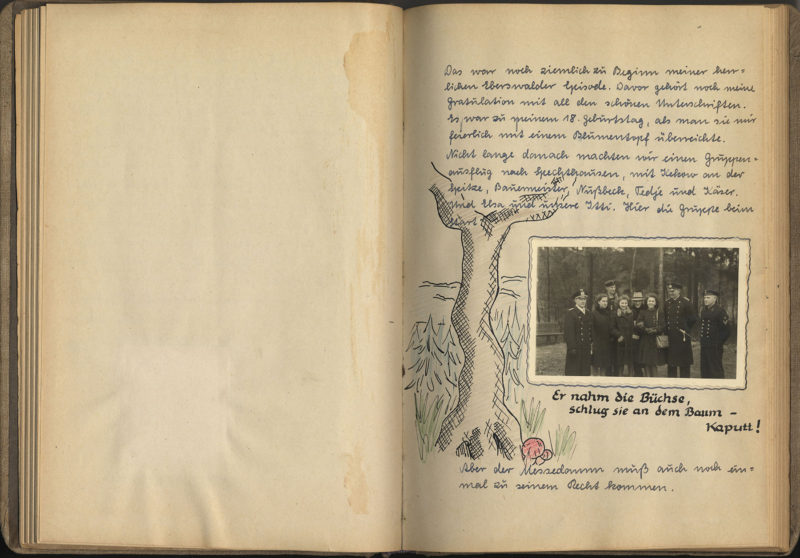 Das war noch ziemlich zu Beginn meiner herr=
lichen Eberswalder Episode. Davor gehört noch meine
Gratulation mit all den schönen Unterschriften.
Es war zu meinem 18. Geburtstag, als man sie mir
feierlich mit einem Blumentopf überreichte.
Nicht lange danach machten wir einen Gruppen=
ausflug nach Spechthausen, mit Kekow an der
Spitze, Bauermeister, Nußbeck, Tedje und Käser.
Und Elsa und unsere Itti. Hier die Gruppe beim
Start:
Er nahm die Büchse,
schlug sie an dem Baum –
Kaputt!
Aber der Messedamm muß auch noch ein=
mal zu seinem Recht kommen.